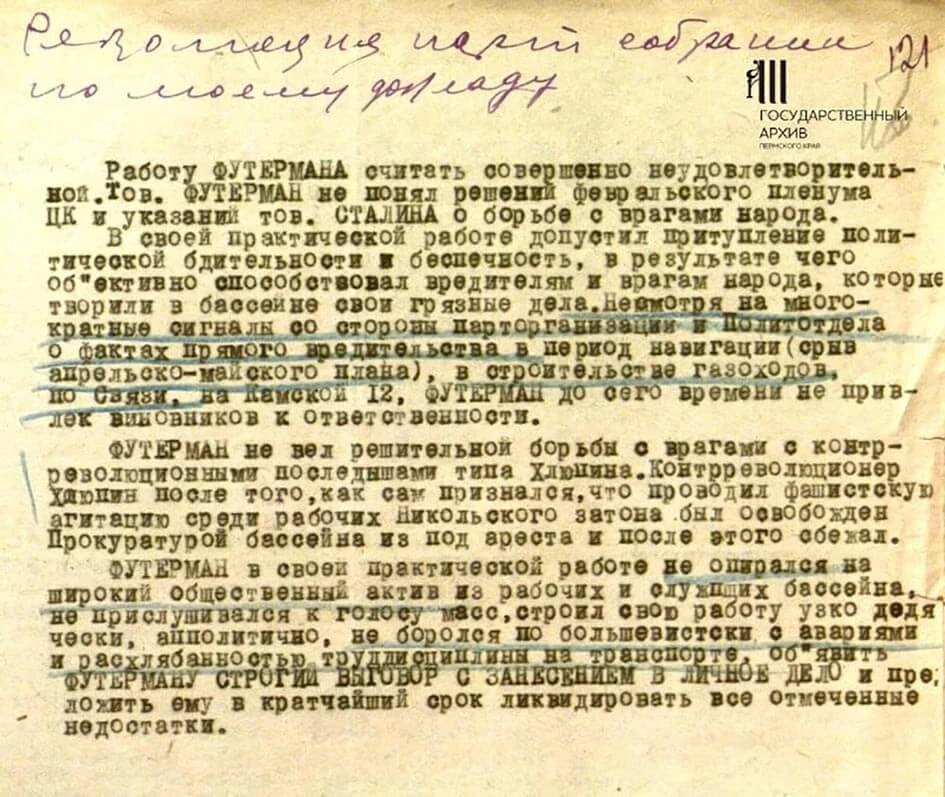 Резолюция парт собрания
по моему докладу
121
ГОСУДАРСТВЕННЫЙ
АРХИВ
ПЕРМСКОГО КРАЯ
Работу ФУТЕРМАНА считать совершенно неудовлетворитель-
ной.Тов. ФУТЕРМАН не понял решений февральского пленума
ЦК и указаний тов. СТАЛИНА о борьбе с врагами народа.
В своей практической работе допустил притупление поли-
тической бдительности и беспечность, в результате чего
об"ективно способствовал вредителям и врагам народа, которые
творили в бассейне свои грязные дела.Несмотря на много-
кратные сигналы со стороны парторганизации и Политотдела
о фактах прямого вредительства в период навигации(срыв
апрельско-майского плана), в строительстве газоходов,
по Связи, на Камской 12, ФУТЕРМАН до сего времени не прив-
лек виновников к ответственности.
ФУТЕРМАН не вел решительной борьбы с врагами с контр-
революционными последышами типа Хлюпина.Контрреволюционер
Хлюпин после того,как сам признался,что проводил фашистскую
агитацию среди рабочих Никольского затона был освобожден
Прокуратурой бассейна из под ареста и после этого сбежал.
ФУТЕРМАН в своей практической работе не опирался на
широкий общественный актив из рабочих и служщих бассейна,
не прислушивался к голосу масс,строил свою работу узко дедя
чески, апполитично, не боролся по большевистски с авариями
и расхлябанностью труддисциплины на транспорте, об"явить
ФУТЕРМАНУ СТРОГИЙ ВЫГОВОР С ЗАНЕСЕНИЕМ В ЛИЧНОЕ ДЕЛО и пре,
ложить ему в кратчайший срок ликвидировать все отмеченные
недостатки.